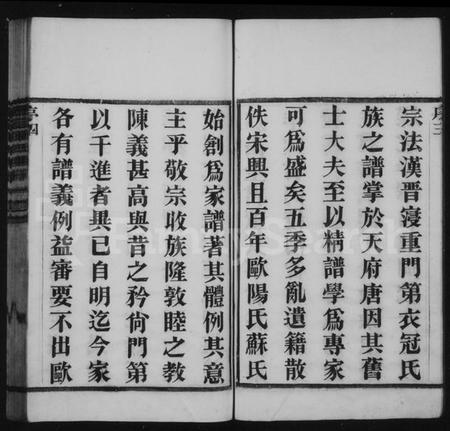 序三
宗法漢晉寖重門第衣冠氏
族之譜掌於天府唐因其舊
士大夫至以精譜學為專家
可為盛矣五季多亂遺籍散
佚宋興且百年歐陽氏蘇氏
始創為家譜著其體例其意
主乎敬宗收族隆敦睦之教
陳義甚高與昔之矜尙門第
以干進者異已自明迄今家
各有譜義例益審要不出歐
序四